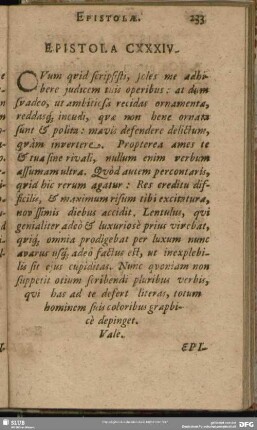 EPISTOLÆ. 233
EPISTOLA CXXXIV.
CVum qvid scripsisti, soles me adhi-
bere judicem tuis operibus: at dum
svadeo, ut ambitiosa recidas ornamenta,
reddasq́; incudi, qvæ non bene ornata
sunt & polita: mavis defendere delictum,
qvàm invertere. Propterea ames te
& tua sine rivali, nullum enim verbum
assumam ultra. Qvòd autem percontaris,
qvid hic rerum agatur: Res creditu dif-
ficilis, & maximum risum tibi excitatura,
novissimis diebus accidit. Lentulus, qvi
genialiter adeò & luxuriosè prius vivebat,
qviq́; omnia prodigebat per luxum nunc
avarus usq́; adeò factus est, ut inexplebi-
lis sit ejus cupiditas. Nunc qvoniam non
suppetit otium scribendi pluribus verbis,
qvi has ad te defert literas, totum
hominem suis coloribus graphi-
cè depinget.
Vale.
EPI-